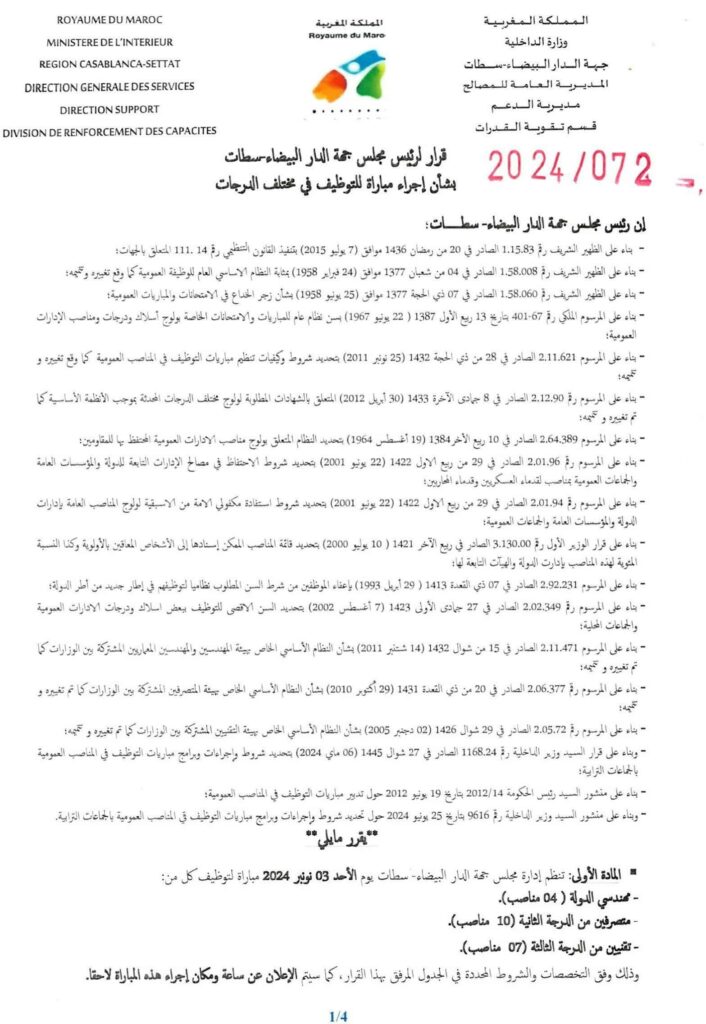 ROYAUME DU MAROC
MINISTERE DE L'INTERIEUR
REGION CASABLANCA-SETTAT
DIRECTION GENERALE DES SERVICES
DIRECTION SUPPORT
DIVISION DE RENFORCEMENT DES CAPACITES
المملكة المغربية
Royaume du Maroc
المملكة المغربية
وزارة الداخلية
جهة الدار البيضاء-سطات
المديرية العامة للمصالح
مديرية الدعم
قسم تقوية القدرات
2024/072
قرار لرئيس مجلس جهة الدار البيضاء-سطات
بشأن إجراء مباراة للتوظيف في مختلف الدرجات
إن رئيس مجلس جهة الدار البيضاء- سطـــات؛
- بناء على الظهير الشريف رقم 1.15.83 الصادر في 20 من رمضان 1436 موافق (7 يوليو 2015) بتنفيذ القانون التنظيمي رقم 14 .111 المتعلق بالجهات؛
- بناء على الظهير الشريف رقم 1.58.008 الصادر في 04 من شعبان 1377 موافق (24 فبراير 1958) بمثابة النظام الاساسي العام للوظيفة العمومية كما وقع تغييره وتتميمه؛
- بناء على الظهير الشريف رقم 1.58.060 الصادر في 07 ذي الحجة 1377 موافق (25 يونيو 1958) بشأن زجر الخداع في الامتحانات والمباريات العمومية؛
- بناء على المرسوم الملكي رقم 67-401 بتاريخ 13 ربيع الأول 1387 ( 22 يونيو 1967) بسن نظام عام للمباريات والامتحانات الخاصة بولوج أسلاك ودرجات ومناصب الإدارات
العمومية؛
- بناء على المرسوم 2.11.621 الصادر في 28 من ذي الحجة 1432 (25 نونبر 2011) بتحديد شروط وكيفيات تنظيم مباريات التوظيف في المناصب العمومية كما وقع تغييره و
تتميمه؛
- بناء على المرسوم رقم 2.12.90 الصادر في 8 جمادى الآخرة 1433 (30 أبريل 2012) المتعلق بالشهادات المطلوبة لولوج مختلف الدرجات المحدثة بموجب الأنظمة الأساسية كما
تم تغييره و تتميمه؛
- بناء على المرسوم رقم 2.64.389 الصادر في 10 ربيع الآخر1384 (19 أغسطس 1964) بتحديد النظام المتعلق بولوج مناصب الادارات العمومية المحتفظ بها للمقاومين؛
- بناء على المرسوم رقم 2.01.96 الصادر في 29 من ربيع الاول 1422 (22 يونيو 2001) بتحديد شروط الاحتفاظ في مصالح الإدارات التابعة للدولة والمؤسسات العامة
والجماعات العمومية بمناصب لقدماء العسكريين وقدماء المحاربين؛
- بناء على المرسوم رقم 2.01.94 الصادر في 29 من ربيع الاول 1422 (22 يونيو 2001) بتحديد شروط استفادة مكفولي الامة من الاسبقية لولوج المناصب العامة بإدارات
الدولة والمؤسسات العامة والجماعات العمومية؛
- بناء على قرار الوزير الأول رقم 3.130.00 الصادر في ربيع الآخر 1421 ( 10 يوليو 2000) بتحديد قائمة المناصب الممكن إسنادها إلى الأشخاص المعاقين بالأولوية وكذا النسبة
المئوية لهذه المناصب بإدارت الدولة والهيآت التابعة لها؛
- بناء على المرسوم 2.92.231 الصادر في 07 ذي القعدة 1413 ( 29 أبريل 1993) بإعفاء الموظفين من شرط السن المطلوب نظاميا لتوظيفهم في إطار جديد من أطر الدولة؛
- بناء على المرسوم رقم 2.02.349 الصادر في 27 جمادى الأولى 1423 (7 أغسطس 2002) بتحديد السن الاقصى للتوظيف ببعض اسلاك ودرجات الادارات العمومية
والجماعات المحلية؛
- بناء على المرسوم رقم 2.11.471 الصادر في 15 من شوال 1432 (14 شتنبر 2011) بشأن النظام الأساسي الخاص بهيئة المهندسين والمهندسين المعماريين المشتركة بين الوزارات كما
تم تغييره و تتميمه؛
- بناء على المرسوم رقم 2.06.377 الصادر في 20 من ذي القعدة 1431 (29 أكتوبر 2010) بشأن النظام الأساسي الخاص بهيئة المتصرفين المشتركة بين الوزارات كما تم تغييره و
تتميمه؛
- بناء على المرسوم رقم 2.05.72 الصادر في 29 شوال 1426 (02 دجنبر 2005) بشأن النظام الأساسي الخاص بهيئة التقنيين المشتركة بين الوزارات كما تم تغييره و تتميمه؛
- وبناء على قرار السيد وزير الداخلية رقم 1168.24 الصادر في 27 شوال 1445 (06 ماي 2024) بتحديد شروط وإجراءات وبرامج مباريات التوظيف في المناصب العمومية
بالجماعات الترابية؛
- بناء على منشور السيد رئيس الحكومة 2012/14 بتاريخ 19 يونيو 2012 حول تدبير مباريات التوظيف في المناصب العمومية؛
- وبناء على منشور السيد وزير الداخلية رقم 9616 بتاريخ 25 يونيو 2024 حول تحديد شروط وإجراءات وبرامج مباريات التوظيف في المناصب العمومية بالجماعات الترابية.
**يقرر مايلي**
▪ المادة الأولى: تنظم إدارة مجلس جهة الدار البيضاء- سطات يوم الأحد 03 نونبر 2024 مباراة لتوظيف كل من:
- مهندسي الدولة ( 04 مناصب).
- متصرفين من الدرجة الثانية (10 مناصب).
- تقنيين من الدرجة الثالثة (07 مناصب).
وذلك وفق التخصصات والشروط المحددة في الجدول المرفق بهذا القرار، كما سيتم الإعلان عن ساعة ومكان إجراء هذه المباراة لاحقا.
1/4